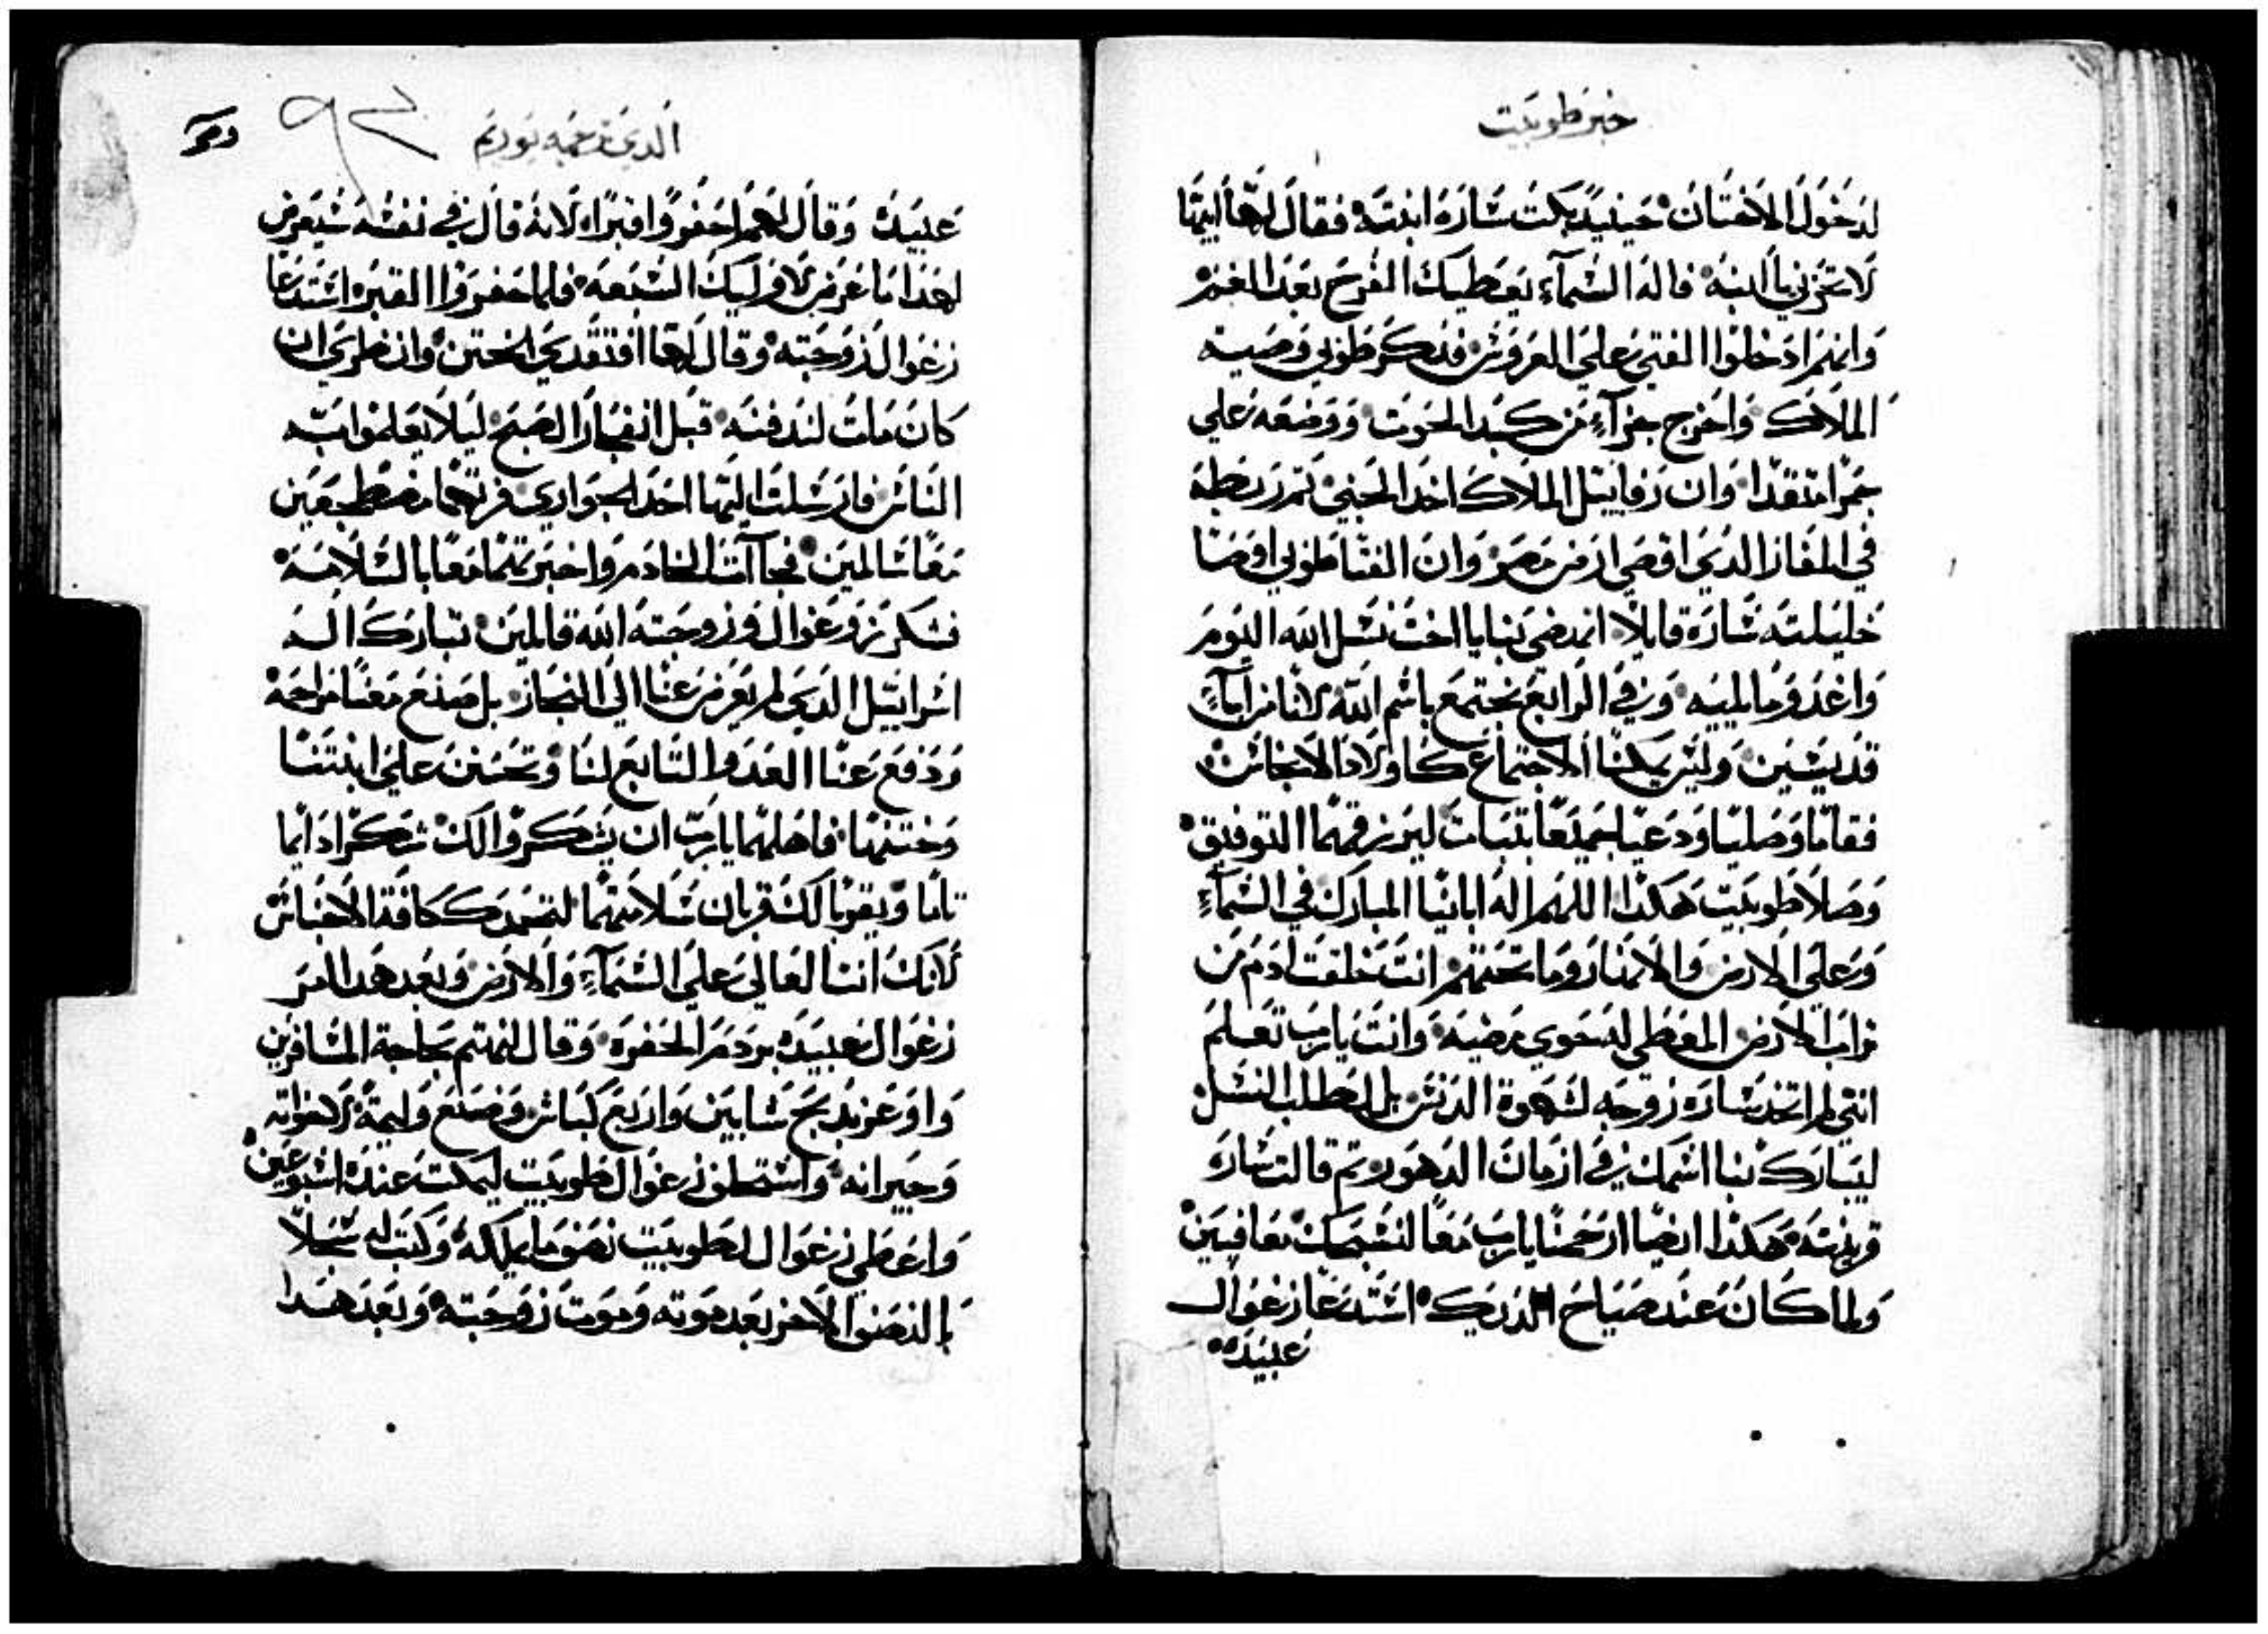 خبر طوبيت
لدخول الاختان حينيد بكت ساره ابنته فقال لها ابيها
لا تحزني يا ابنه فاله السماء يعطيك الفرح بعد الغم
وانهم ادخلوا الفتى على العروس فذكر طوبي وصيت
الملاك واخرج جزاء من كبد الحوت ووضعه علي
جمرا متقدا وان رفاييل الملاك اخد الجني تم ربطه
في المفاز الدي اقصي ارض مصر وان الفتا طوبي اوصا
خليلته ساره قايلا انهضي بنا يا اخت نسل الله اليوم
واغد وما يليه وفي الرابع نجتمع باسم الله لانا من اباء
قديسين وليس يمكنا الاجتماع كاولاد الانجاس
فقاما وصليا ودعيا جميعا بتبات ليرزقهما التوفيق
وصلا طوبيت هكدا اللهم اله ابانيا المبارك في السماء
وعلي الارض والانهار وما تحتهم انت خلقت ادم من
تراب الارض المعطي له حوي مرضيه وانت يارب تعلم
انني لم اتخد ساره زوجه لشهوة الدنس بل لطلب النسل
ليبارك بنا اسمك في ازمان الدهور تم قالت ساره
قرينته هكدا ايضا ارحمنا يارب معا لنسبحك معافيين
ولما كان عند صياح الديك استدعا زغوال
عبيده
الدي ترجمه يوريم
٩٢
عبيده وقال لهم احفروا قبرا لانه قال في نفسه سيعرض
لهدا ما عرض لاوليك السبعه فلما حفروا القبر استدعا
زغوال زوجته وقال لها افتقدي الختن وانظري ان
كان مات لندفنه قبل انفجار الصبح ليلا يعلموا به
الناس فارسلت اليهما احد الجواري فراتهما مضطجعين
معا سالمين فجاات الخادم واخبرتهما معا بالسلامه
فشكر زغوال وزوجته الله قالين تبارك اله
اسراييل الدي لم يعرض عنا الي النجاز بل صنع معنا مراحمه
ودفع عنا العدو التابع لنا وتحنن علي ابنتنا
وختنها فاهلهما يارب ان يشكروا لك شكرا دايما
تاما ويقربا لك قربان سلامتهما لتمجدك كافة الاجناس
لانك انت العالي علي السماء والارض وبعد هدا امر
زغوال عبيده بردم الحفره وقال لنهتم بحاجة المسافرين
واوعز بدبح شابين واربع كباش وصنع وليمة لاخواته
وجيرانه واستحلف زغوال طوبيت ليمكت عنده اسبوعين
واعطي زغوال لطوبيت نصف ما يملكه وكتب له سجلا
بالنصف الاخر بعد موته وموت زوجته وبعد هدا